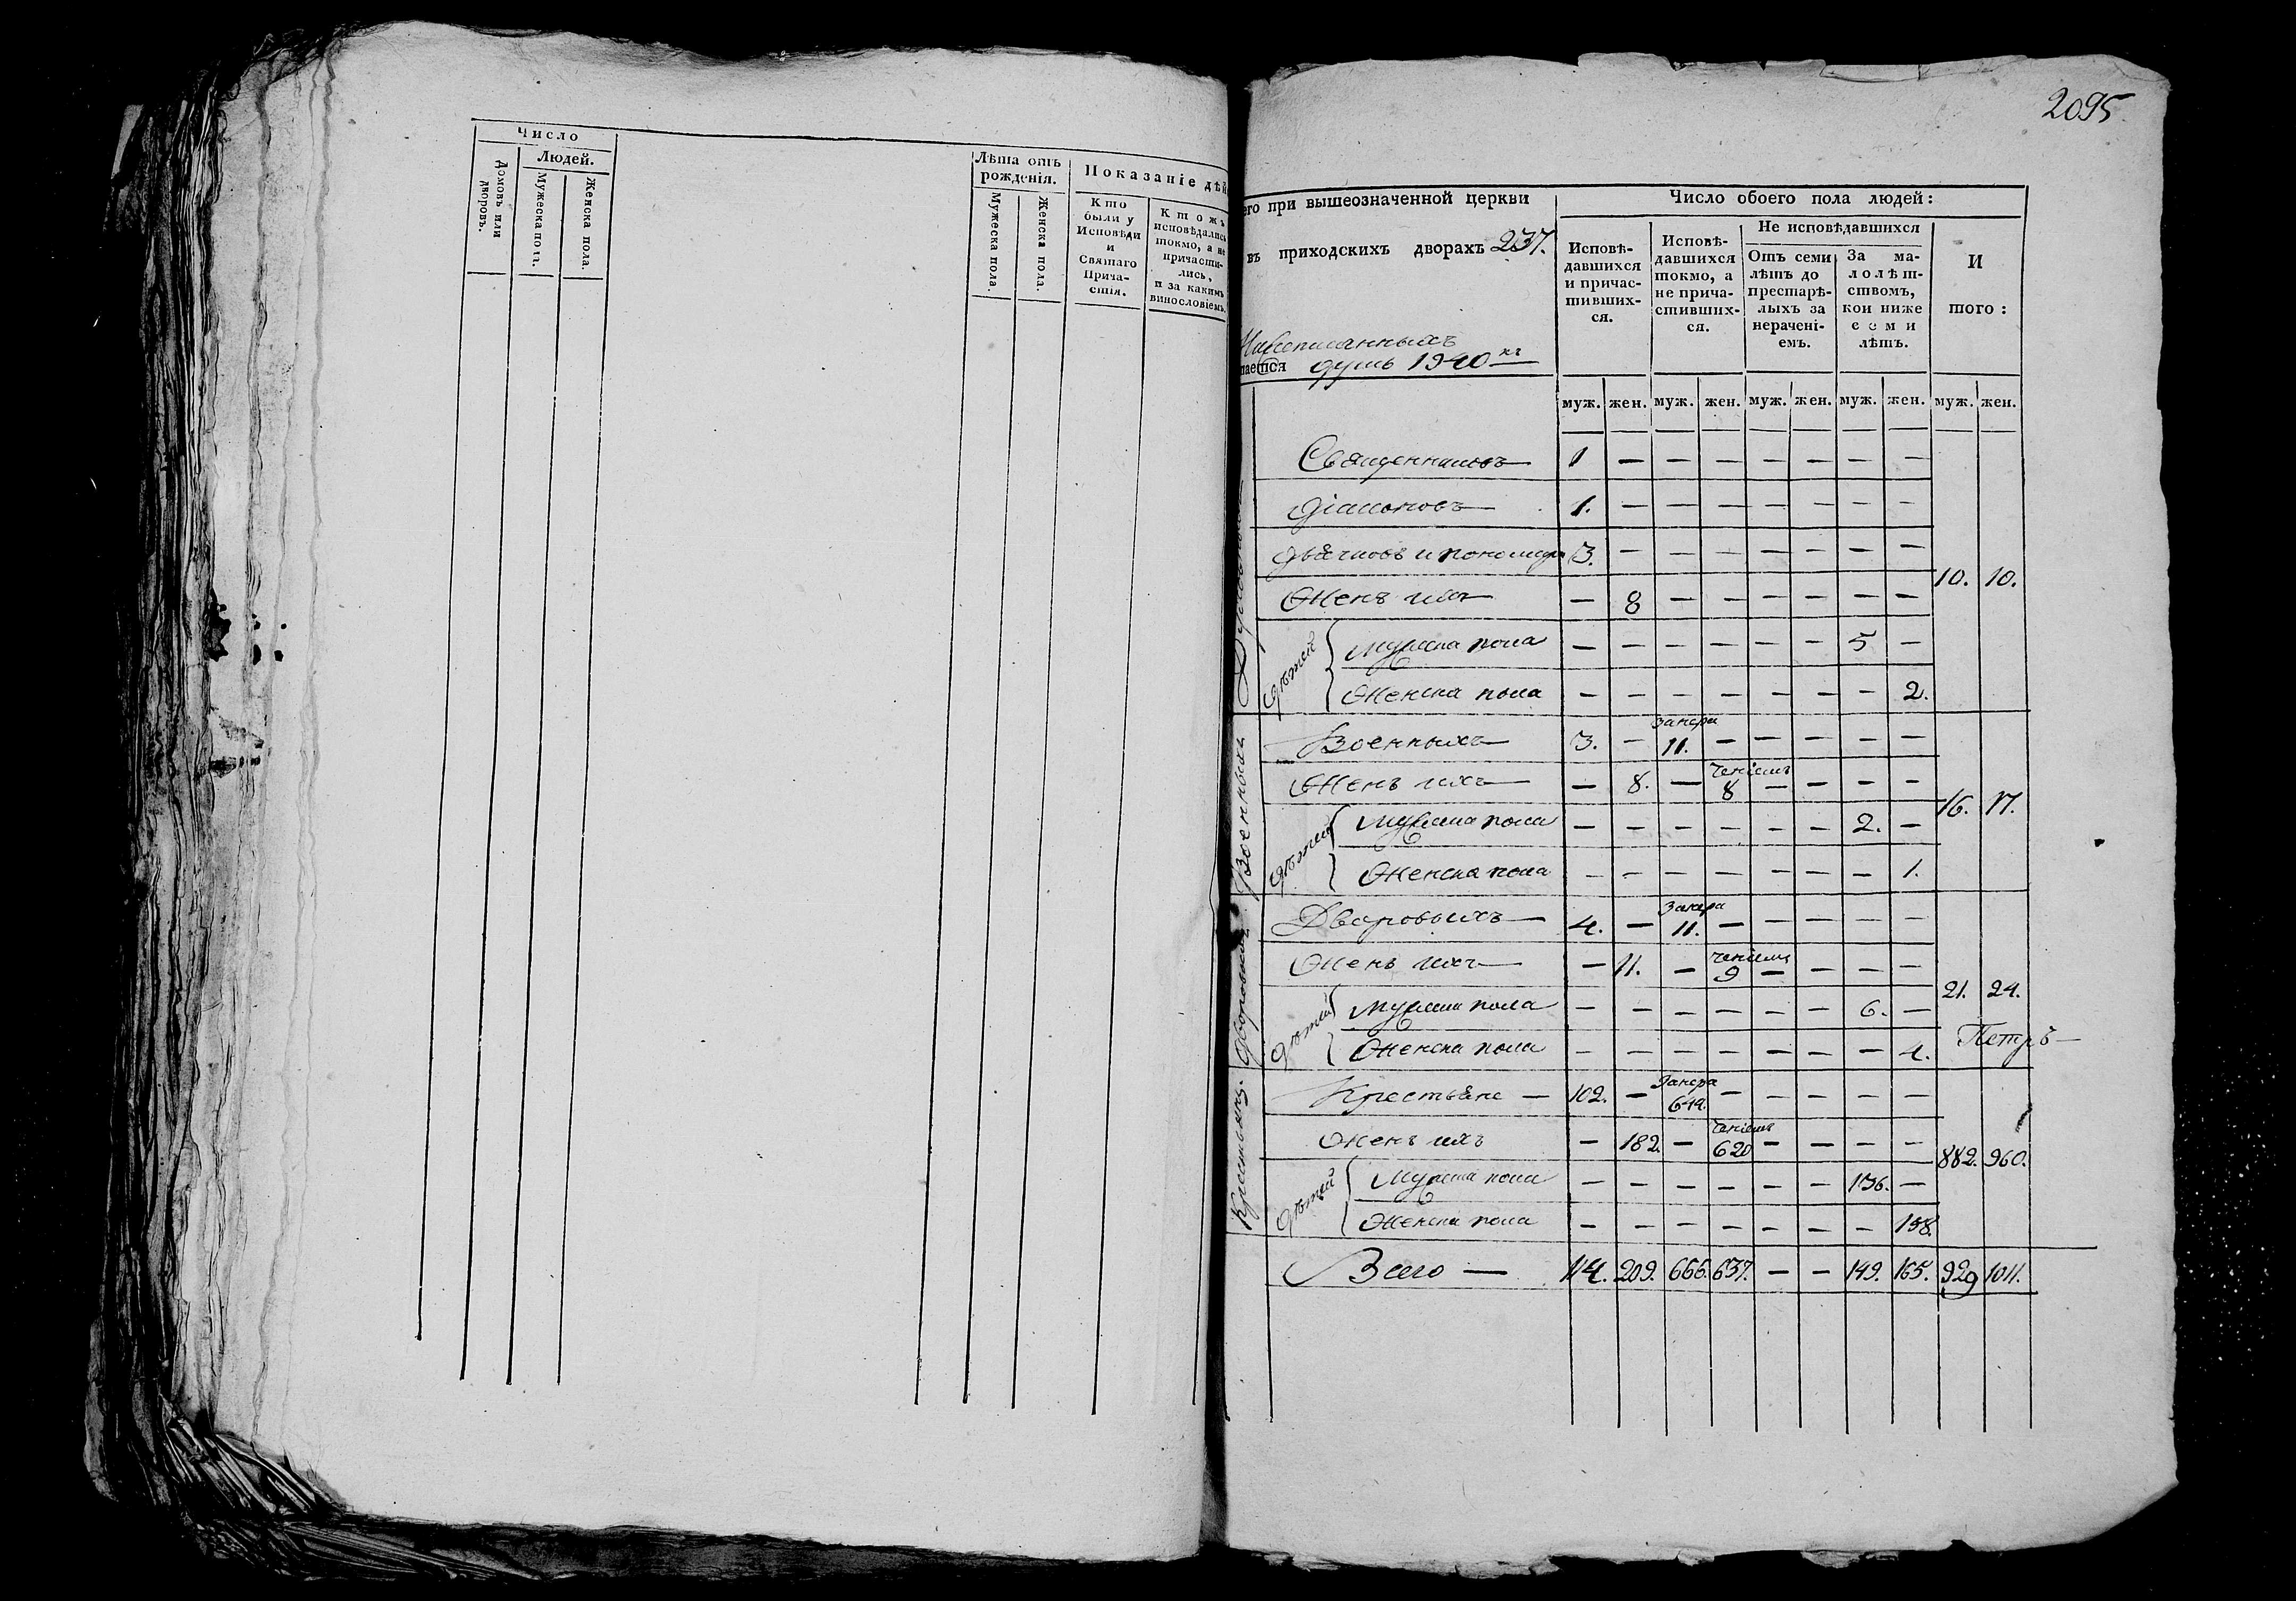 Число
Людей.
Домовъ или дворовъ.
Мужеска пола.
Женска пола.
Лѣта отъ рожденія.
Мужеска пола.
Женска пола.
Показаніе дѣй
Кто были у Исповѣди и Святаго Прича- стія.
Кто жъ исповѣдались токмо, а не причасти- лись, и за какимъ винословіемъ.
2095
его при вышеозначенной церкви
въ приходскихъ дворахъ 237.
тается душъ 1940
Число обоего пола людей:
Исповѣ-
давшихся
и причас-
тивших-
ся.
Исповѣ-
давшихся
токмо, а
не прича-
стивших-
ся.
Не исповѣдавшихся
Отъ семи
лѣтъ до
престарѣ-
лыхъ за
нерачені-
емъ.
За ма-
лолѣт-
ствомъ,
кои ниже
семи
лѣтъ.
И
того:
муж. жен. муж. жен. муж. жен. муж. жен. муж. жен.
Священниковъ 1 — — — — — — —
Діаконовъ 1. — — — — — — —
Дьячковъ и пономаре 3. — — — — — — —
10. 10.
Женъ ихъ — 8 — — — — — —
Дѣтей
Мужеска пола — — — — — — 5 —
Женска пола — — — — — — — 2.
Военныхъ
Военныхъ 3. — Занера 11. — — — — —
Женъ ихъ — 8. — ченіемъ 8 — — — —
16. 17.
Дѣтей
Мужеска пола — — — — — — 2. —
Женска пола — — — — — — — 1.
Дворовыхъ
Дворовыхъ 4. — Занера 11. — — — — —
Женъ ихъ — 11. — ченіемъ 9 — — — —
21. 24.
Дѣтей
Мужеска пола — — — — — — 6. —
Женска пола — — — — — — — 4.
Петръ —
Крестьянъ.
Крестьяне — 102. — Занера 644. — — — — —
Женъ ихъ — 182. — ченіемъ 620 — — — —
882. 960.
Дѣтей
Мужеска пола — — — — — — 136. —
Женска пола — — — — — — — 158.
Всего — 114. 209. 666. 637. — — 149. 165. 929 1011.